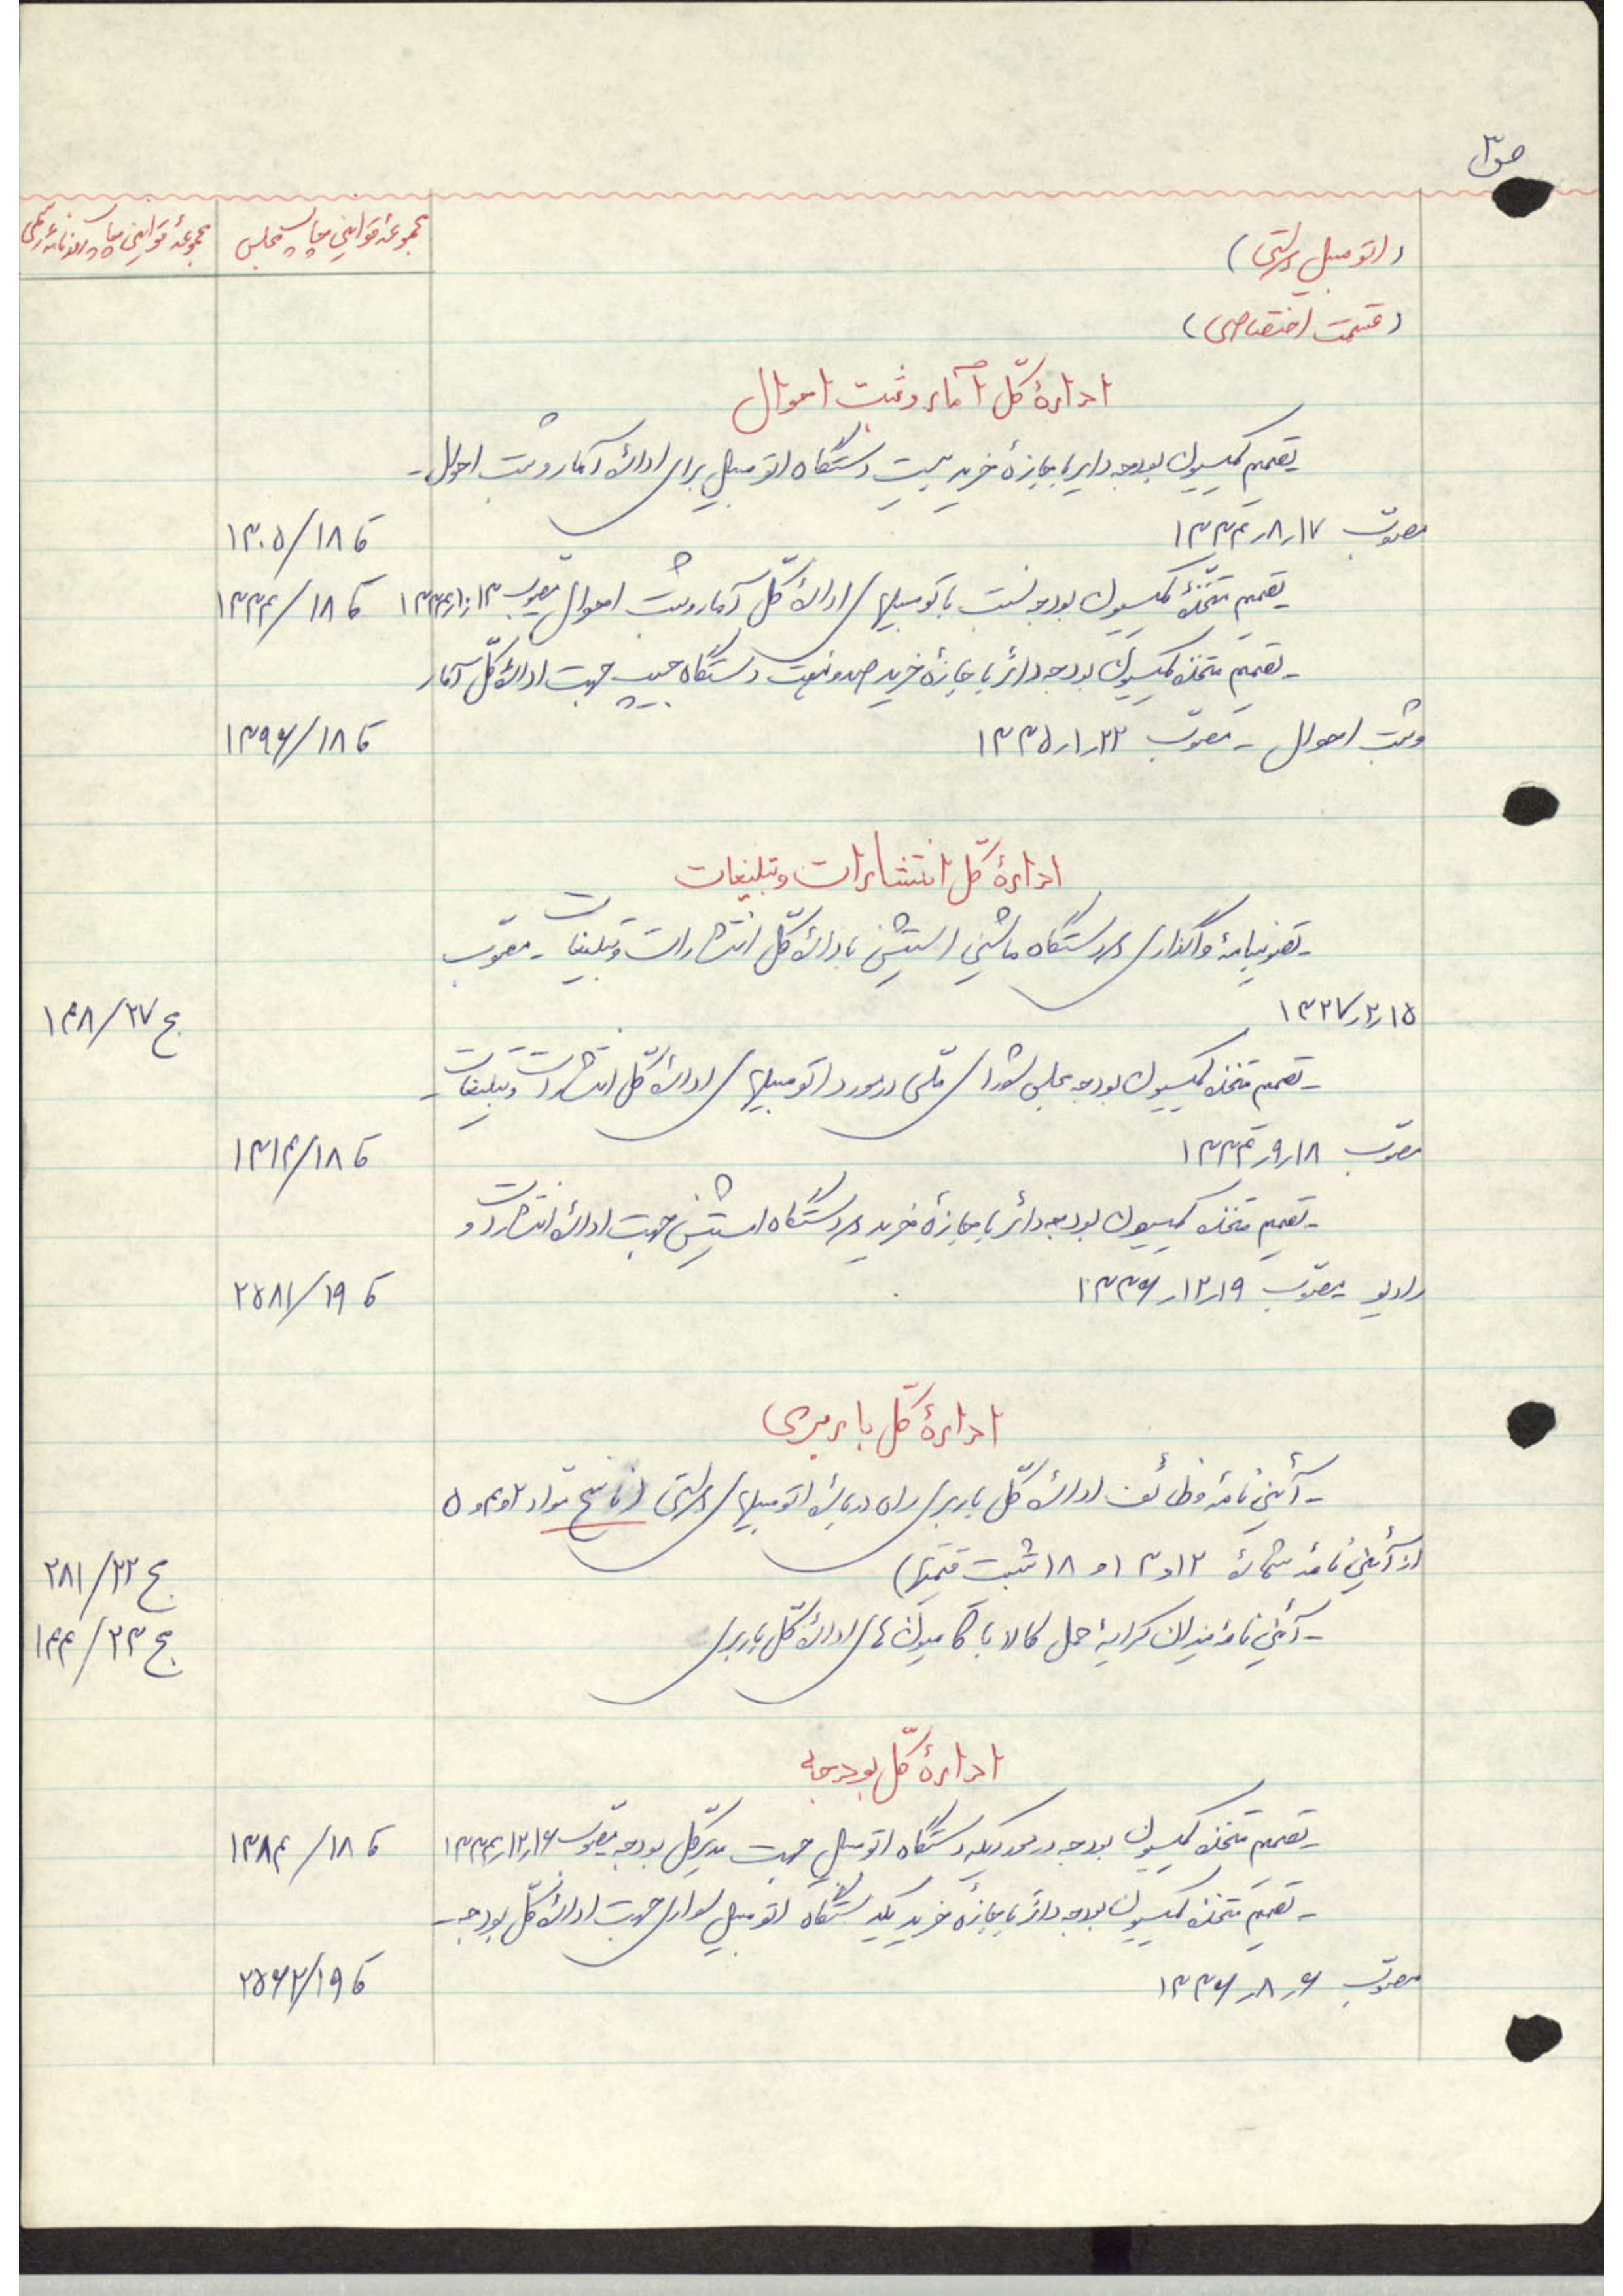 ص ۳
مجموعهٔ قوانین چاپ مجلس
مجموعهٔ قوانین چاپ روزنامهٔ رسمی
(اتومبیل دولتی)
(قسمت اختصاصی)
ادارهٔ کلّ آمار و ثبت احوال
تصمیم کمیسیون بودجه دایر باجازهٔ خرید بیست دستگاه اتومبیل برای ادارهٔ آمار و ثبت احوال -
مصوّب ۱۳۳۴٫۸٫۱۷
ق ۱۸/۱۳۰۵
تصمیم متخذهٔ کمیسیون بودجه نسبت باتومبیلهای ادارهٔ کلّ آمار و ثبت احوال مصوّب
ق ۱۸/۱۳۳۴
- تصمیم متخذه کمیسیون بودجه دائر باجازهٔ خرید صد و دستگاه جیپ جهت ادارهٔ کلّ آمار
و ثبت احوال - مصوّب ۱۳۳۵٫۱٫۲۲
ق ۱۸/۱۳۹۶
ادارهٔ کلّ انتشارات و تبلیغات
- تصویبنامهٔ واگذاری دو دستگاه ماشین استیشن بادارهٔ کلّ انتشارات و تبلیغات - مصوّب
۱۳۲۷٫۲٫۱۵
ج ۲۷/۱۴۸
- تصمیم متخذه کمیسیون بودجه مجلس شورای ملّی در مورد اتومبیلهای ادارهٔ کلّ انتشارات و تبلیغات -
مصوّب ۱۳۳۴٫۹٫۱۸
ق ۱۸/۱۳۱۴
- تصمیم متخذه کمیسیون بودجه دائر باجازهٔ خرید دو دستگاه استیشن جهت ادارهٔ انتشارات و
رادیو مصوّب ۱۳۳۶٫۱۲٫۱۹
ق ۱۹/۲۵۸۱
ادارهٔ کلّ باربری
- آئین نامهٔ وظائف ادارهٔ کلّ باربری راه دربارهٔ اتومبیلهای دولتی (ناسخ مواد ۲ و ۴ و ۵
از آئین نامهٔ شمارهٔ ۱۲ و ۱۳ و ۱۸ تثبیت قیمتها)
ج ۲۲/۲۸۱
- آئین نامهٔ میزان کرایهٔ حمل کالا با کامیون های ادارهٔ کلّ باربری
ج ۲۳/۱۴۴
ادارهٔ کلّ بودجه
- تصمیم متخذه کمیسیون بودجه در مورد یکدستگاه اتومبیل جهت مدیرکل بودجه مصوّب ۱۳۳۴٫۱۲٫۱۶
ق ۱۸/۱۳۸۴
- تصمیم متخذه کمیسیون بودجه دائر باجازهٔ خرید یکدستگاه اتومبیل سواری جهت ادارهٔ کلّ بودجه -
مصوّب ۱۳۳۶٫۸٫۶
ق ۱۹/۲۵۶۲